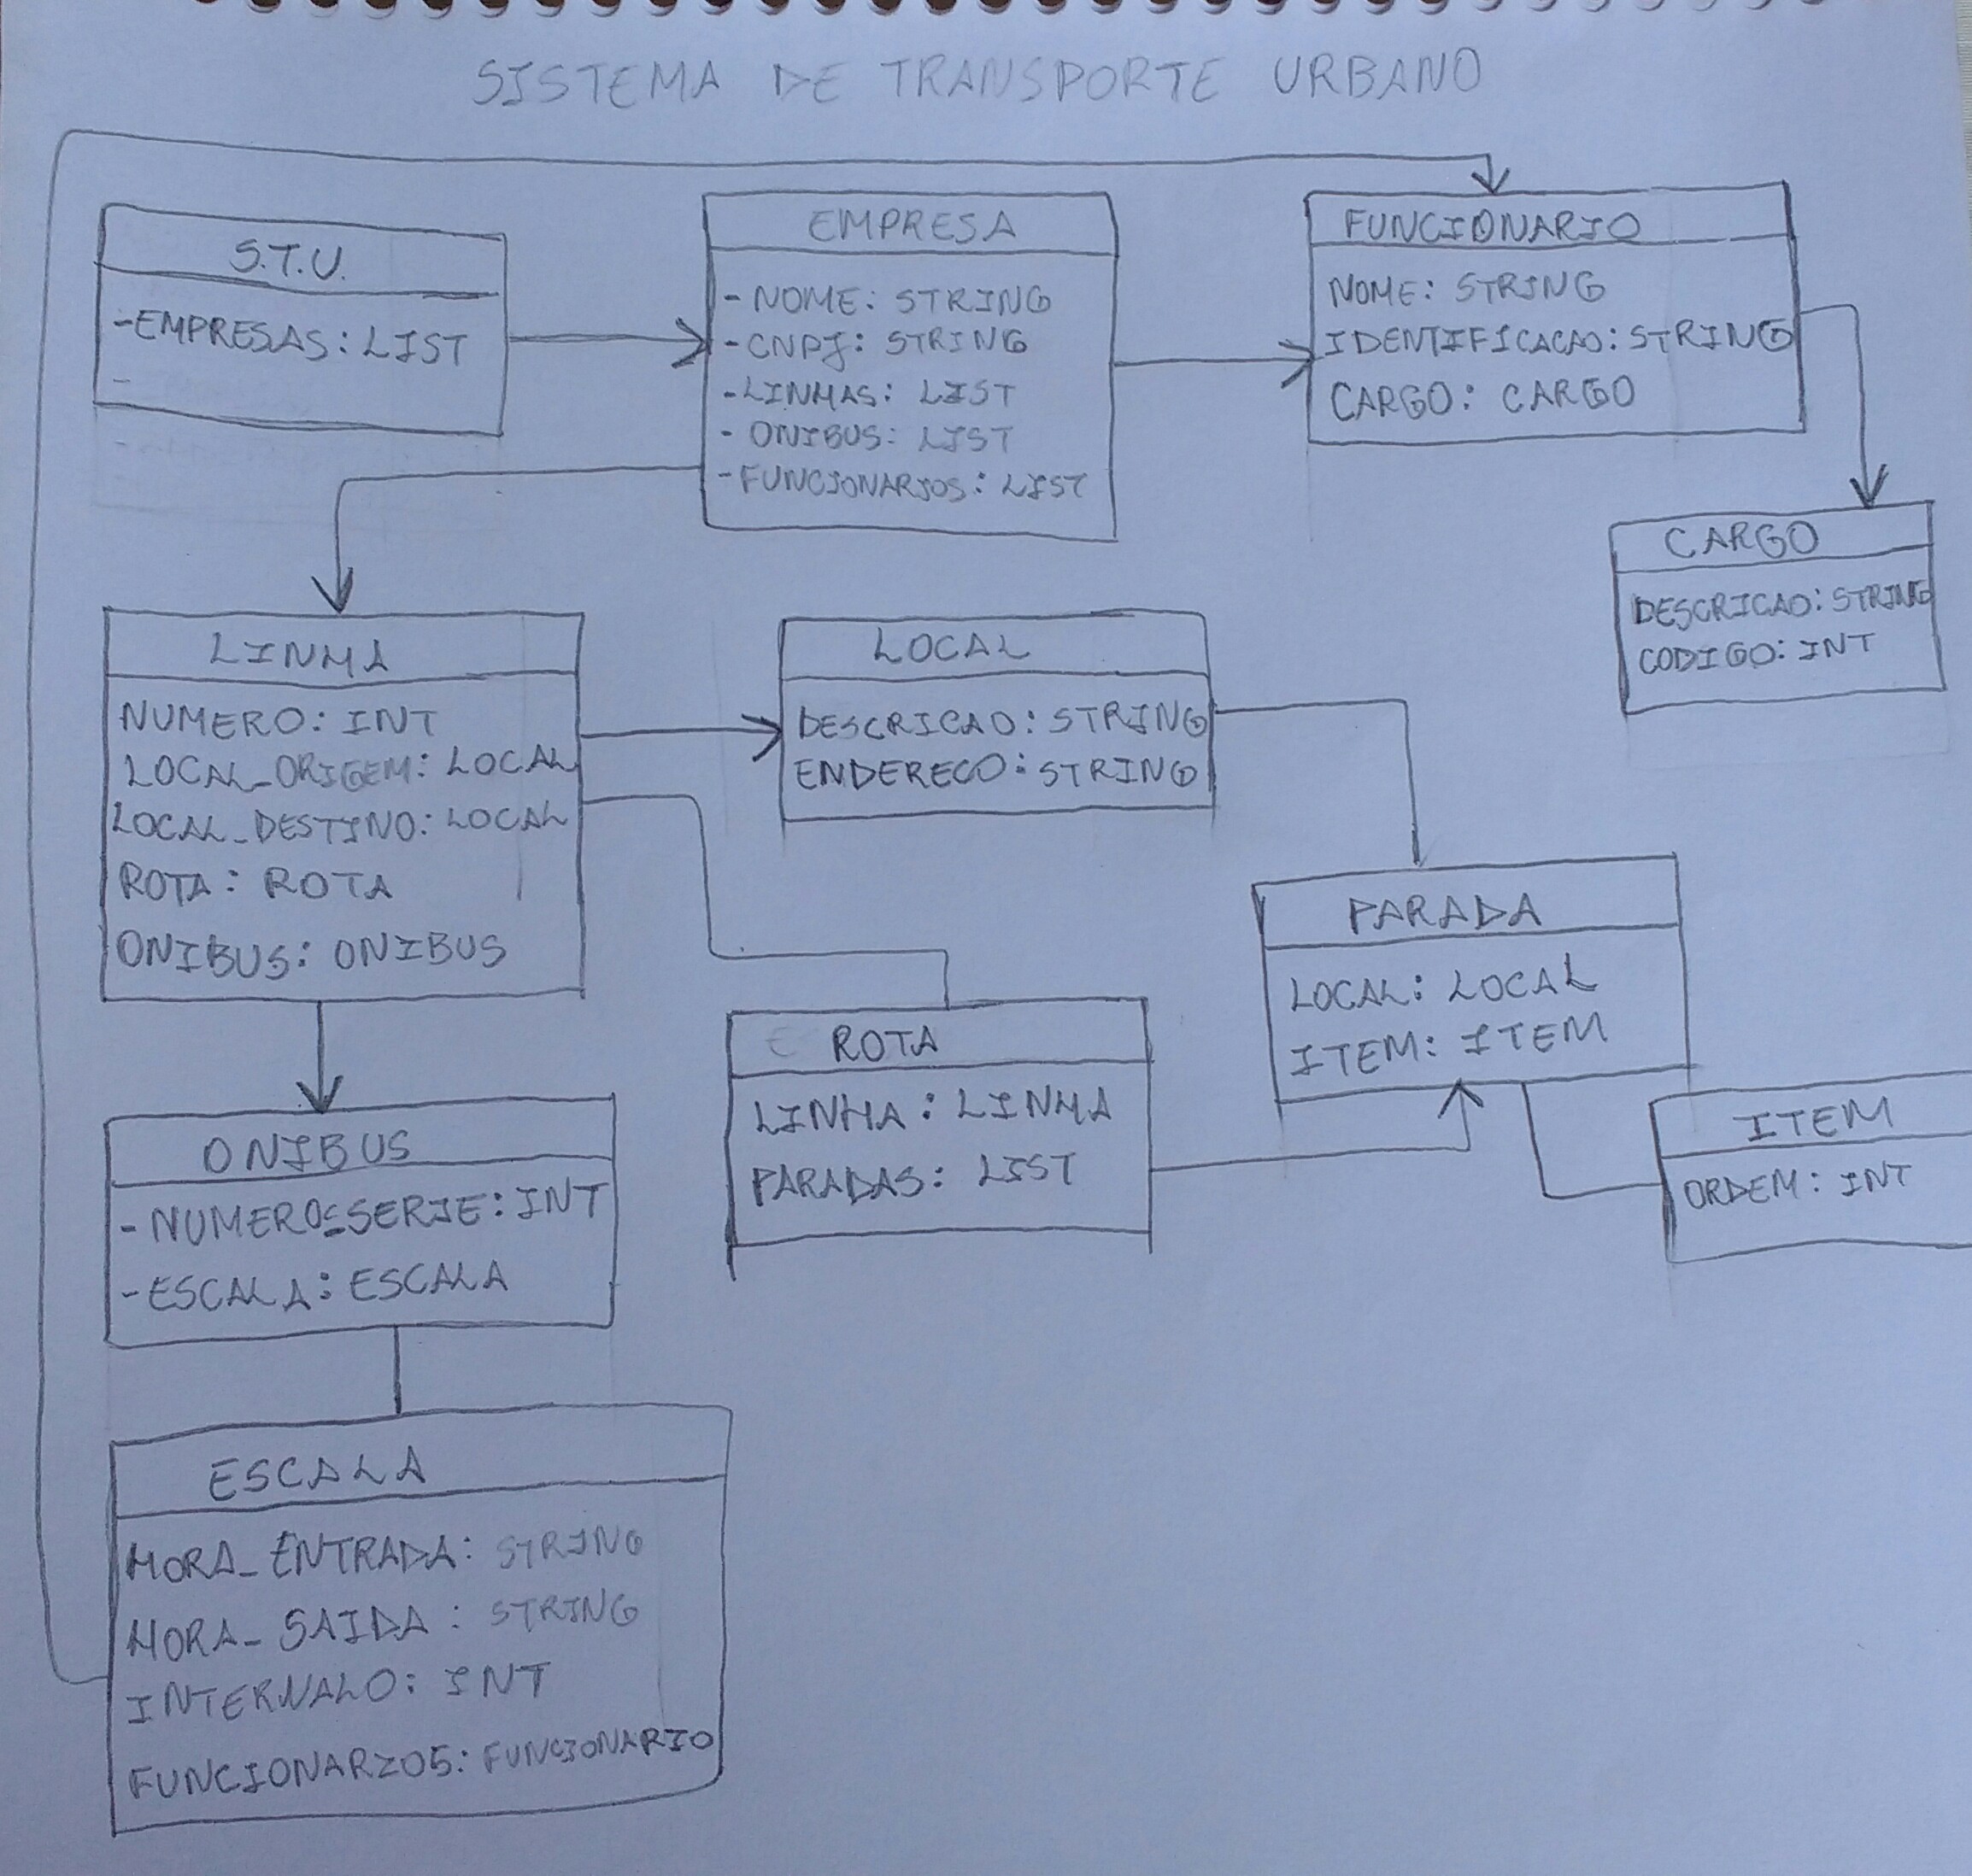 SISTEMA DE TRANSPORTE URBANO
S.T.U.
-EMPRESAS: LIST
-
EMPRESA
- NOME: STRING
- CNPJ: STRING
- LINHAS: LIST
- ONIBUS: LIST
- FUNCIONARIOS: LIST
FUNCIONARIO
NOME: STRING
IDENTIFICACAO: STRING
CARGO: CARGO
CARGO
DESCRICAO: STRING
CODIGO: INT
LINHA
NUMERO: INT
LOCAL_ORIGEM: LOCAL
LOCAL_DESTINO: LOCAL
ROTA: ROTA
ONIBUS: ONIBUS
LOCAL
DESCRICAO: STRING
ENDERECO: STRING
PARADA
LOCAL: LOCAL
ITEM: ITEM
ROTA
LINHA: LINHA
PARADAS: LIST
ITEM
ORDEM: INT
ONIBUS
- NUMERO_SERIE: INT
- ESCALA: ESCALA
ESCALA
HORA_ENTRADA: STRING
HORA_SAIDA: STRING
INTERVALO: INT
FUNCIONARIOS: FUNCIONARIO